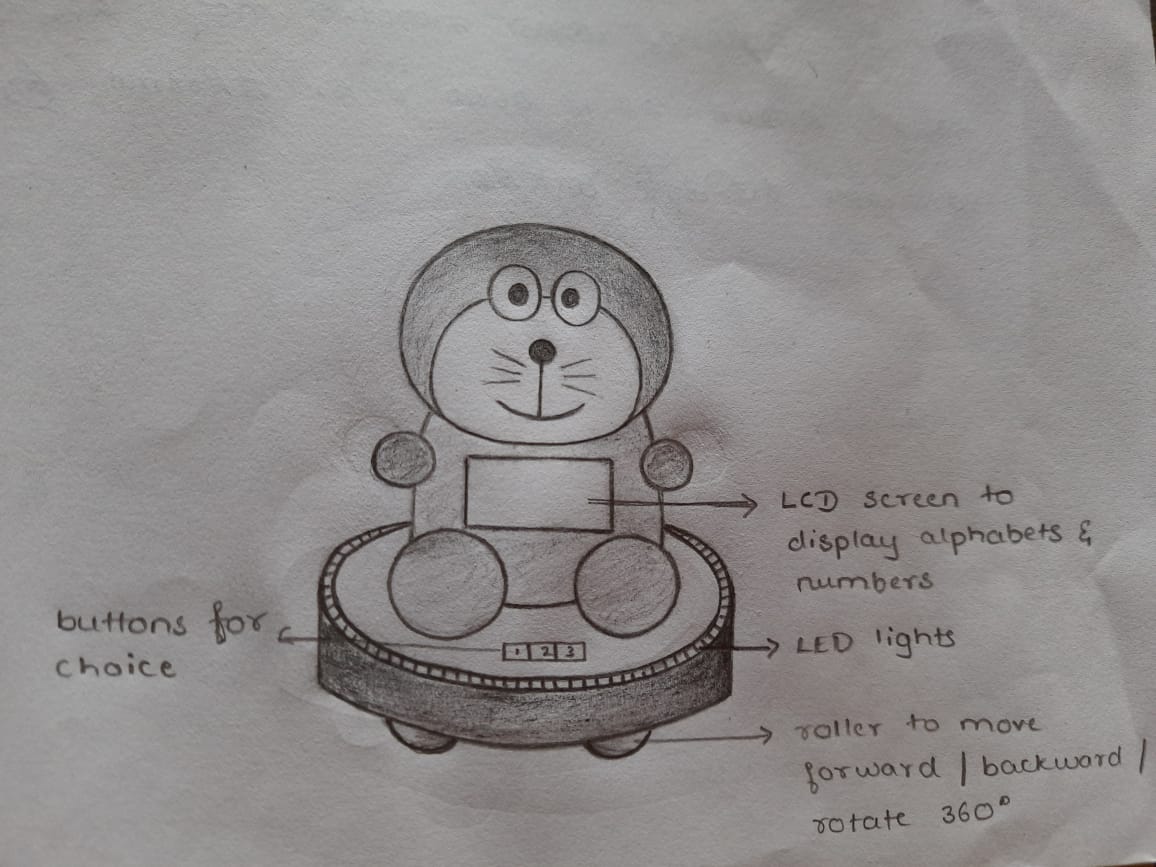 LCD screen to
display alphabets &
numbers
buttons for
choice
1 2 3
LED lights
roller to move
forward / backward /
rotate 360°